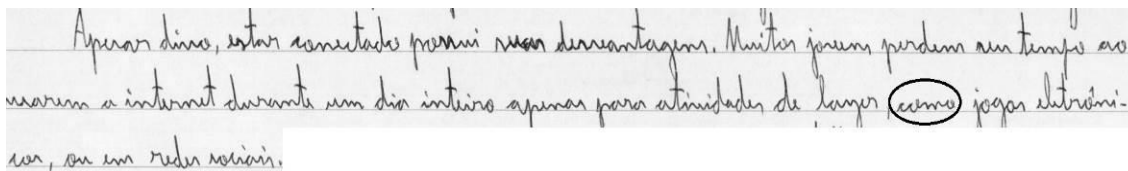 Apesar disso, estar conectado possui suas desvantagens. Muitos jovens perdem seu tempo ao
usarem a internet durante um dia inteiro apenas para atividades de lazer como jogos eletrôni-
cos, ou em redes sociais.